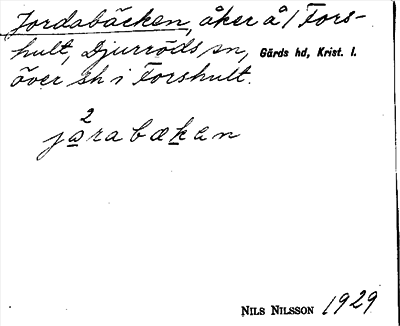 Jordabäcken, åker å 1 Fors-
hult, Djurröds sn, Gärds hd, Krist. l.
över sh i Forshult.
2
jo̲rabæk̲an
NILS NILSSON 1929